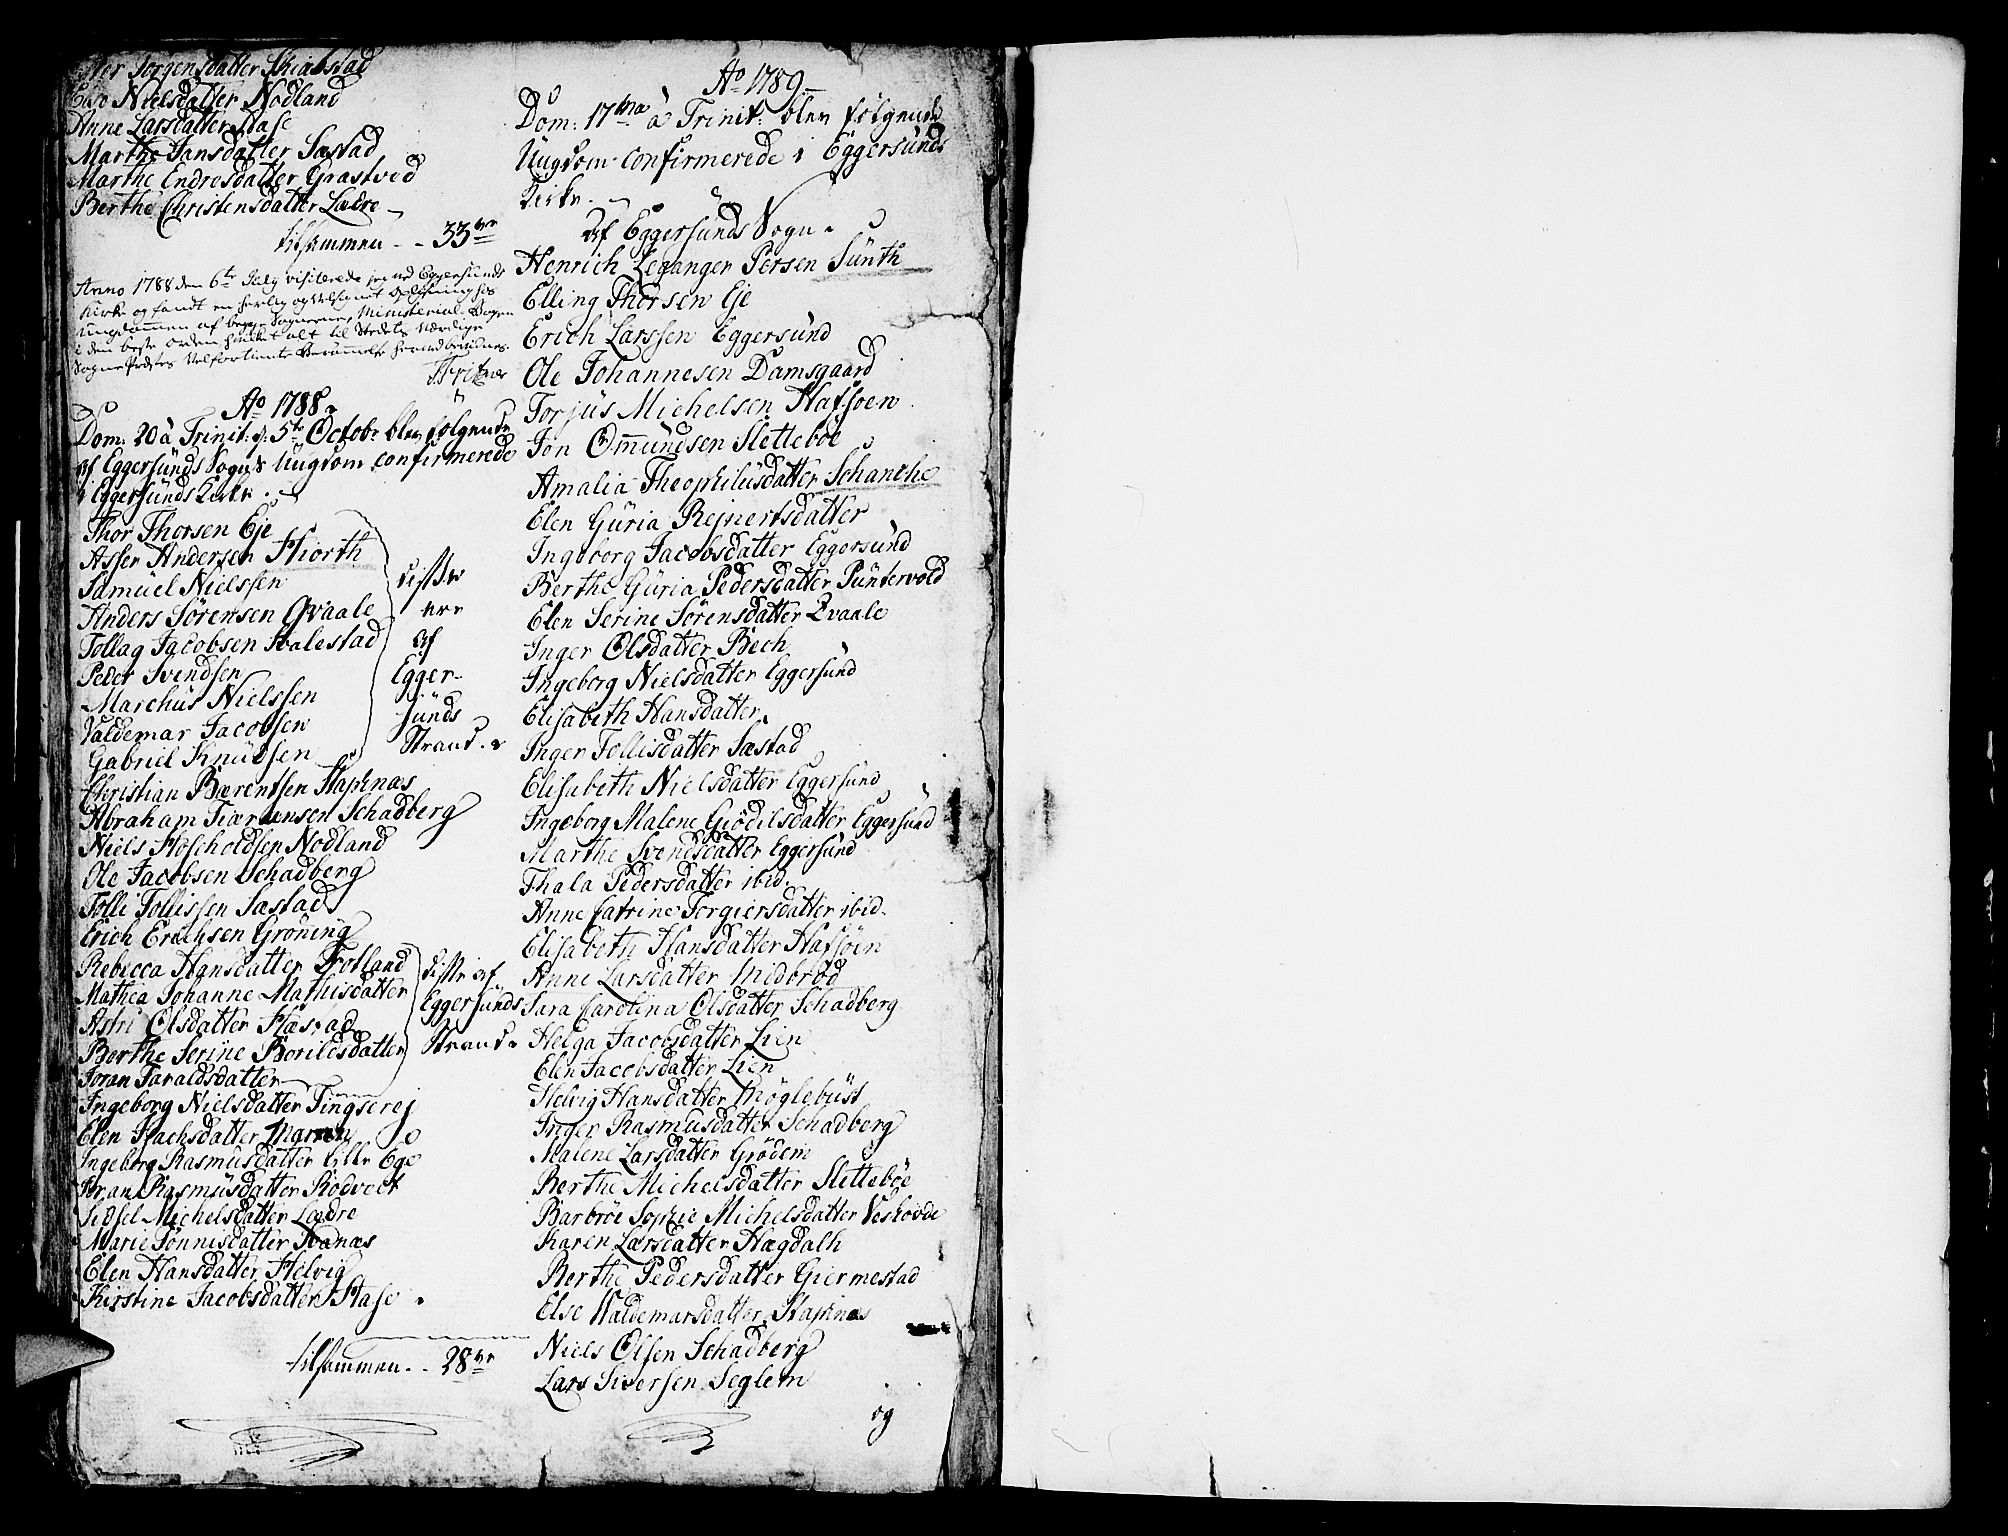 Jørgensdatter Skiabstad
Nielsdatter Nodland
Anne Larsdatter Stase
Marthe Jansdatter Sæstad
Marthe Endresdatter Grastved
Berthe Christensdatter Lædre
tilsammen - - 33ve
Anno 1788 den 6te July visiterede jeg ved Eggersunds
Kirke og fandt en herlig og velsignet Oplysning hos
Ungdommen af begge Sognerne, Ministerial Bogen
i den beste orden hvilket alt til Stedets Værdige
Sogne Præstes Velfortiente Berømmelse herved bevidnes.
Fritzner
Ao 1788.
Dom: 20 à Trinit: d: 5te Octobr blev følgende
af Eggersunds Sogns Ungdom confirmerede
i Eggersunds Kirke.
Thor Thorsen Eje
Asser Andersen Hiorth
Samuel Nielssen
Anders Sørensen Qvaale
Tollag Jacobsen Svalestad
Peder Svendsen
Marchus Nielssen
Valdemar Jacobsen
Gabriel Knudsen
disse
ere
af
Egger-
sunds
Strand.
Christian Bærentsen Stapnæs
Abraham Schadberg
Niels Hoscholdsen Nodland
Ole Jacobsen Schadberg
Tolli Tollissen Sæstad
Erich Erichsen Grøning
Rebecca Hansdatter Fotland
Mathea Johanne Mathisdatter
Astri Olsdatter Hæstad
Berthe Serine Borildsdatter
Joran Taraldsdatter
disse af
Eggersunds
Strand.
Ingeborg Nielsdatter Tingserej
Elen Isachsdatter
Ingeborg Rasmusdatter lille Ege
Joran Rasmusdatter Rodvelt
Sidsel Michelsdatter Lædre
Marie Tønnisdatter Svanæs
Elen Hansdatter Helvig
Kirstine Jacobsdatter Stase.
tilsammen. - 28ve
Ao 1789
Dom: 17tna à Trinit: blev følgende
Ungdom confirmerede i Eggersunds
Kirke.
Af Eggersunds Sogn.
Henrich Leganger Persen Sünth
Elling Thorsen Eje
Erich Larssen Eggersund
Ole Johannesen Damsgaard
Torjus Michelsen Hafsøen
Jon Omundsen Slettebøe
Amalia Theophilusdatter Schanche
Elen Guria Rejnertsdatter
Ingeborg Jacobsdatter Eggersund
Berthe Guria Pedersdatter Puntervold
Elen Serine Sørensdatter Qvaale
Inger Olsdatter Bech
Ingeborg Nielsdatter Eggersund
Elisabeth Hansdatter
Inger Tollisdatter Sæstad
Elisabeth Nielsdatter Eggersund
Ingeborg Malene Giødilsdatter Eggersund
Marthe Svendsdatter Eggersund
Thala Pedersdatter ibid.
Anne Catrine Torgiersdatter ibid.
Elisabeth Hansdatter Hafsøen
Anne Larsdatter Midbrød
Sara Carolina Olsdatter Schadberg
Helga Jacobsdatter Lien
Elen Jacobsdatter Lien
Helvig Hansdatter Møglebüst
Inger Rasmusdatter Schadberg
Malene Larsdatter Grødem
Berthe Michelsdatter Slettebøe
Barbroe Sophie Michelsdatter Veshovde
Karen Larsdatter Hægdalh
Berthe Pedersdatter Giermestad
Else Waldemarsdatter Stapnæs
Niels Olsen Schadberg
Lars Siversen Seglem
og